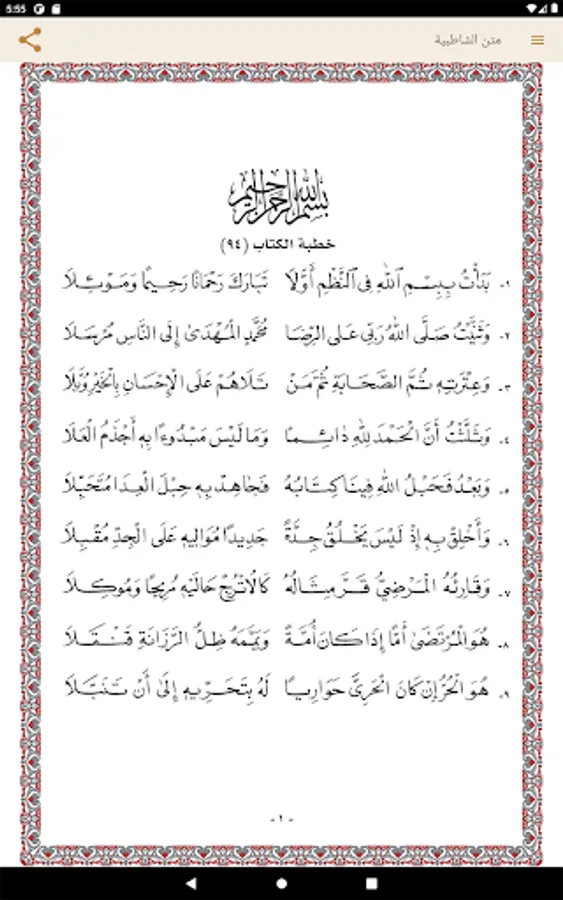 5:55
متن الشاطبية
بسم الله الرحمن الرحيم
خطبة الكتاب (٩٤)
١. بَدَأْتُ بِبِسْمِ ٱللَّهِ فِي ٱلنَّظْمِ أَوَّلَا تَبَارَكَ رَحْمَانًا رَحِيمًا وَمَوْئِلَا
٢. وَثَنَّيْتُ صَلَّى اللَّهُ رَبِّي عَلَى الرِّضَا مُحَمَّدٍ الْمُهْدَىٰ إِلَى النَّاسِ مُرْسَلَا
٣. وَعِتْرَتِهِ ثُمَّ الصَّحَابَةِ ثُمَّ مَنْ تَلَاهُمْ عَلَى الْإِحْسَانِ بِالْخَيْرِ وُبَّلَا
٤. وَثَلَّثْتُ أَنَّ الْحَمْدَ لِلَّهِ دَائِمًا وَمَا لَيْسَ مَبْدُوءًا بِهِ أَجْذَمُ الْعَلَا
٥. وَبَعْدُ فَحَبْلُ اللَّهِ فِينَا كِتَابُهُ فَجَاهِدْ بِهِ حِبْلَ الْعِدَا مُتَحَبِّلَا
٦. وَأَخْلِقْ بِهِ إِذْ لَيْسَ يَخْلُقُ جِدَّةً جَدِيدًا مُوَالِيهِ عَلَى الْجِدِّ مُقْبِلَا
٧. وَقَارِئُهُ الْمَرْضِيُّ قَرَّ مِثَالُهُ كَالْاتْرُجِّ حَالَيْهِ مُرِيحًا وَمُوكِلَا
٨. هُوَ الْمُرْتَضَىٰ أَمًّا إِذَا كَانَ أُمَّةً وَيَمَّمَهُ ظِلُّ الرَّزَانَةِ قَنْقَلَا
٩. هُوَ الْحُرُّ إِنْ كَانَ الْحَرِيَّ حَوَارِيًا لَهُ بِتَحَرِّيهِ إِلَىٰ أَنْ تَنَبَّلَا
- ١ -